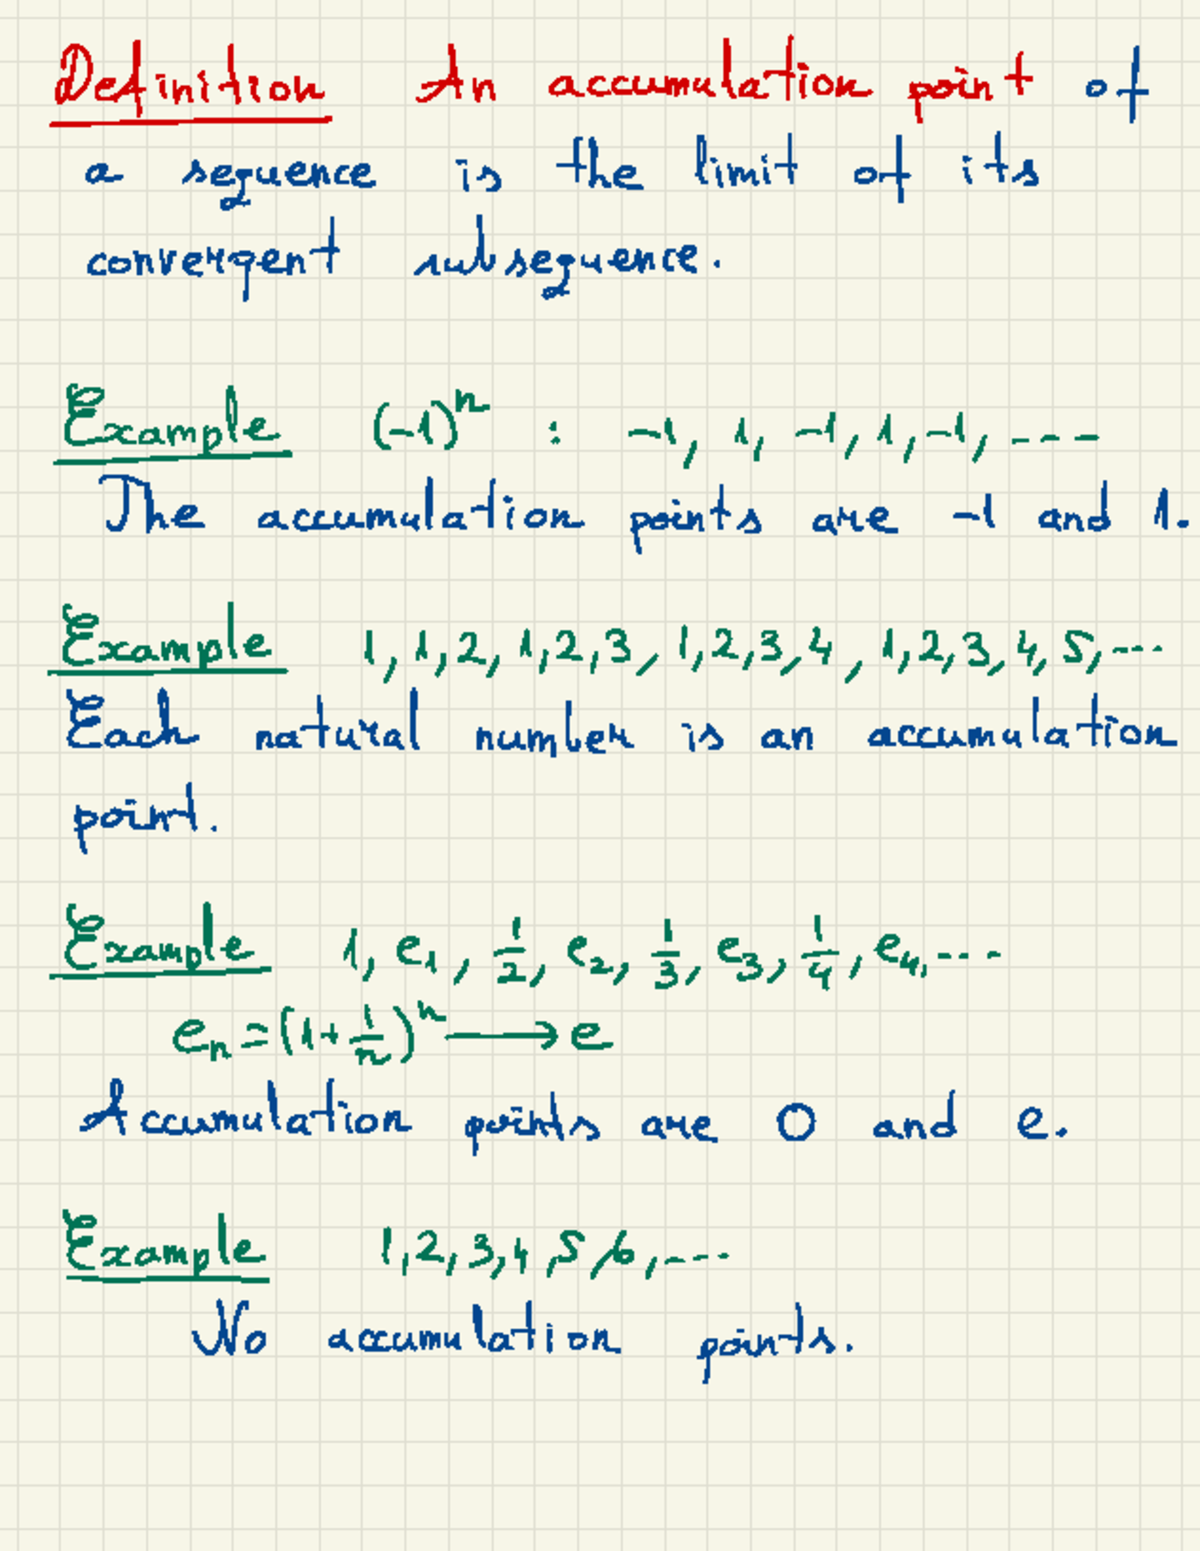 Definition An accumulation point of
a sequence is the limit of its
convergent subsequence.
Example (-1)^n : -1, 1, -1, 1, -1, ----
The accumulation points are -1 and 1.
Example 1, 1, 2, 1, 2, 3, 1, 2, 3, 4, 1, 2, 3, 4, 5, ---
Each natural number is an accumulation
point.
Example 1, e₁, 1/2, e₂, 1/3, e₃, 1/4, e₄, ---
eₙ = (1 + 1/n)^n ⟶ e
Accumulation points are 0 and e.
Example 1, 2, 3, 4, 5, 6, ----
No accumulation points.